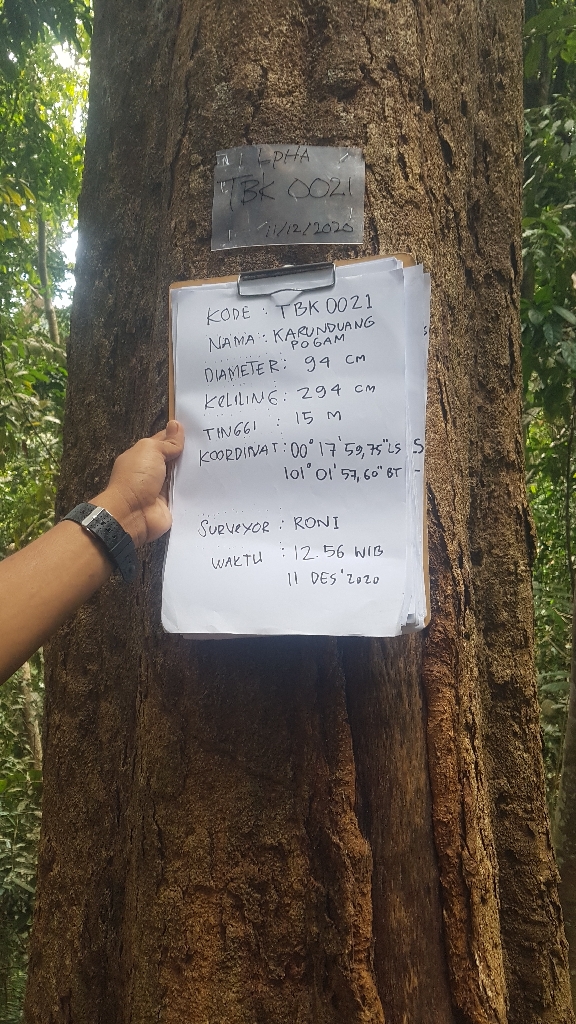 LPHA
TBK 0021
11/12/2020
KODE : TBK 0021
NAMA : KARUNDUANG
POGAM
DIAMETER : 94 CM
KELILING : 294 CM
TINGGI : 15 M
KOORDINAT : 00° 17' 59,75" LS
101° 01' 57,60" BT
SURVEYOR : RONI
WAKTU : 12.56 WIB
11 DES'2020